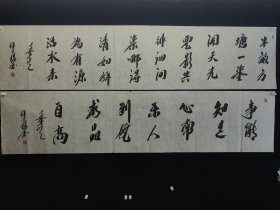 半畝方
塘一鉴
開天光
雲影共
徘徊问
渠那得
清如許
为有源
活水来
事能
知足
心常
乐人
到无
求品
自高